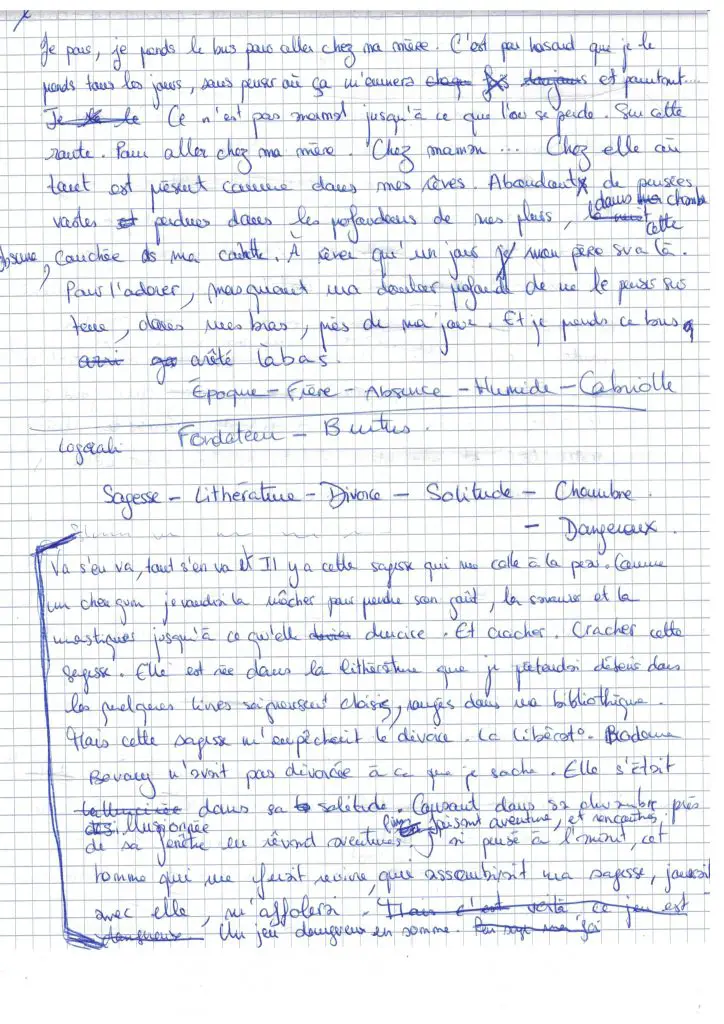 Je pars, je prends le bus pour aller chez ma mère. C'est par hasard que je le
prends tous les jours, sans penser où ça m'emmera chaque fois toujours et pourtant...
Je le Ce n'est pas maman jusqu'à ce que l'on se perde. Sur cette
route. Pour aller chez ma mère. Chez maman ... Chez elle où
tout est présent comme dans mes rêves. Abondants de pensées
vastes et perdues dans les profondeurs de mes pleurs, la nuit dans ma chambre
cette
obscure, Couchée ds ma couette. À rêver qu'un jour mon père sra là.
Pour l'adorer, masquant ma douleur profonde de ne le penser sur
terre, dans mes bras, près de ma joue. Et je prends ce bus
arrêté làbas.
Époque - Frère - Absence - Humide - Cabriolle
Fondateur - Brutus.
Logorali
Sagesse - Lithérature - Divorce - Solitude - Chambre.
- Dangereux.
Va s'en va, tout s'en va et Il y a cette sagesse qui me colle à la peau. Comme
un chewgum je voudrai la mâcher pour perdre son goût, la savourer et la
mastiquer jusqu'à ce qu'elle durcisse. Et cracher. Cracher cette
sagesse. Elle est née dans la lithérature que je prétendai détenir dans
les quelques livres soigneusement choisis, rangés dans ma bibliothèque.
Mais cette sagesse m'empêcherait le divorce. La libérat°. Madame
Bovary n'avait pas divorcée à ce que je sache. Elle s'était
hallucinée dans sa solitude. Causant dans sa chambre près
illusionnée faisant aventure, et rencontres
de sa fenêtre en rêvant aventures. J'ai pensé à l'amant, cet
homme qui me ferait revivre, qui assombrirait ma sagesse, jouerait
avec elle, m'affolera. voilà ce jeu est
dangereux Un jeu dangereux en somme.